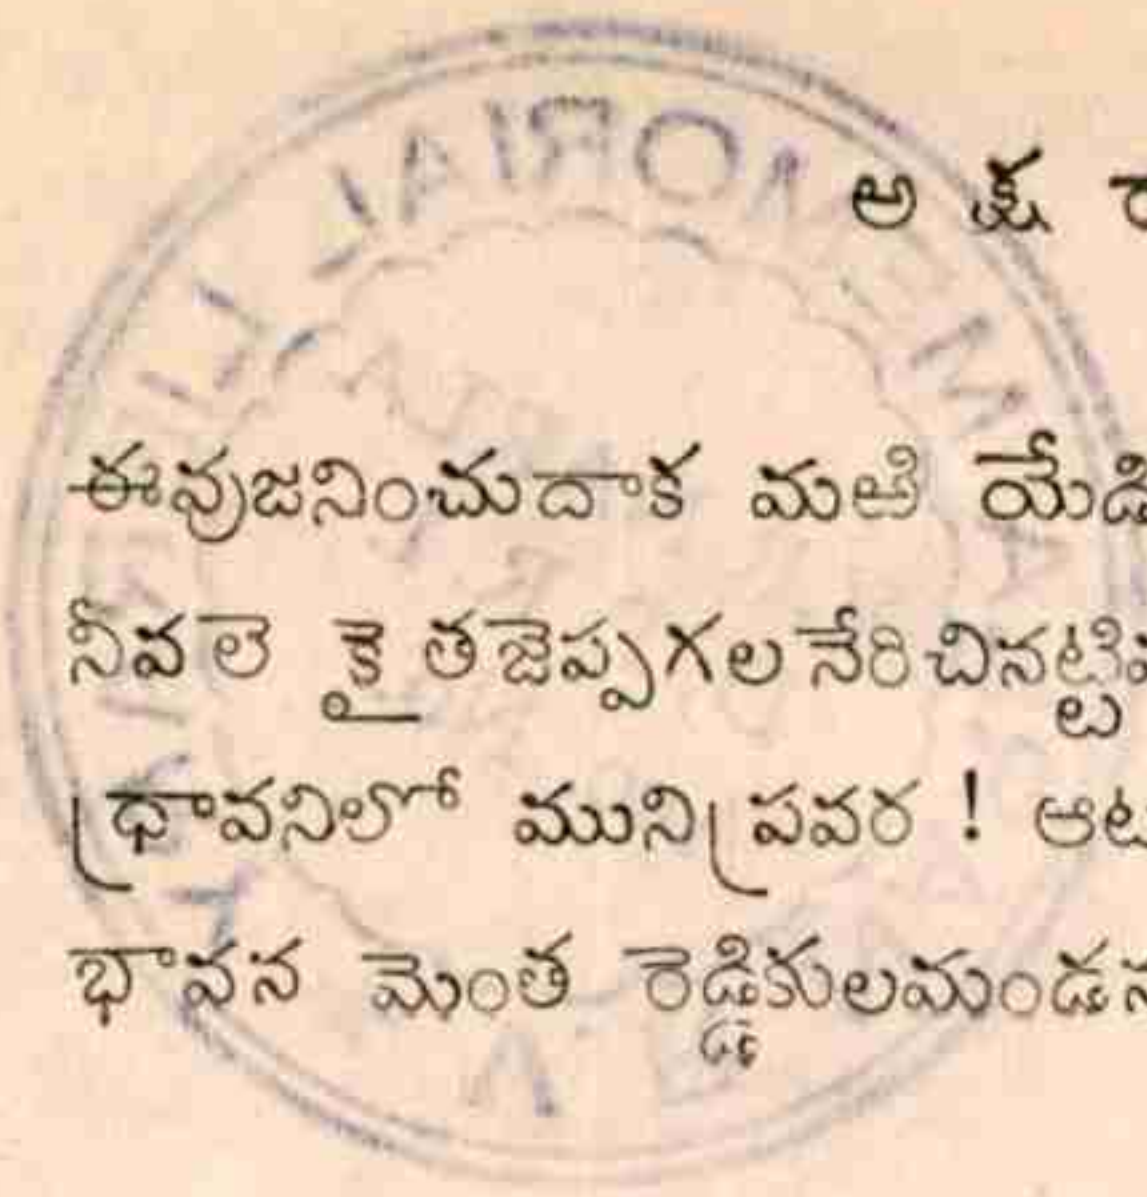 అ క్ష రా
ఈవుజనించుదాక మఱి యేడి
నీవలె కైతజెప్పగల నేరిచినట్టి
ధ్రావనిలో మునిప్రవర ! ఆట
భావన మెంత రెడ్డికులమండన
MEMORIAL